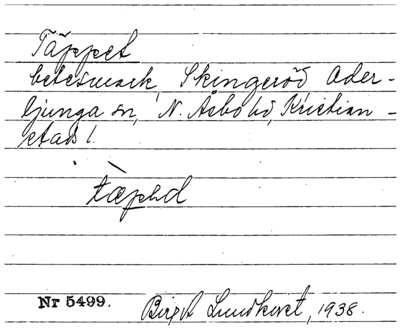 Täppet
betesmark, Skingeröd, Ader-
ljunga sn, N. Åsbo hd, Kristian-
stads l.
tæpəd
Nr 5499. Birgit Lundkvist, 1938.